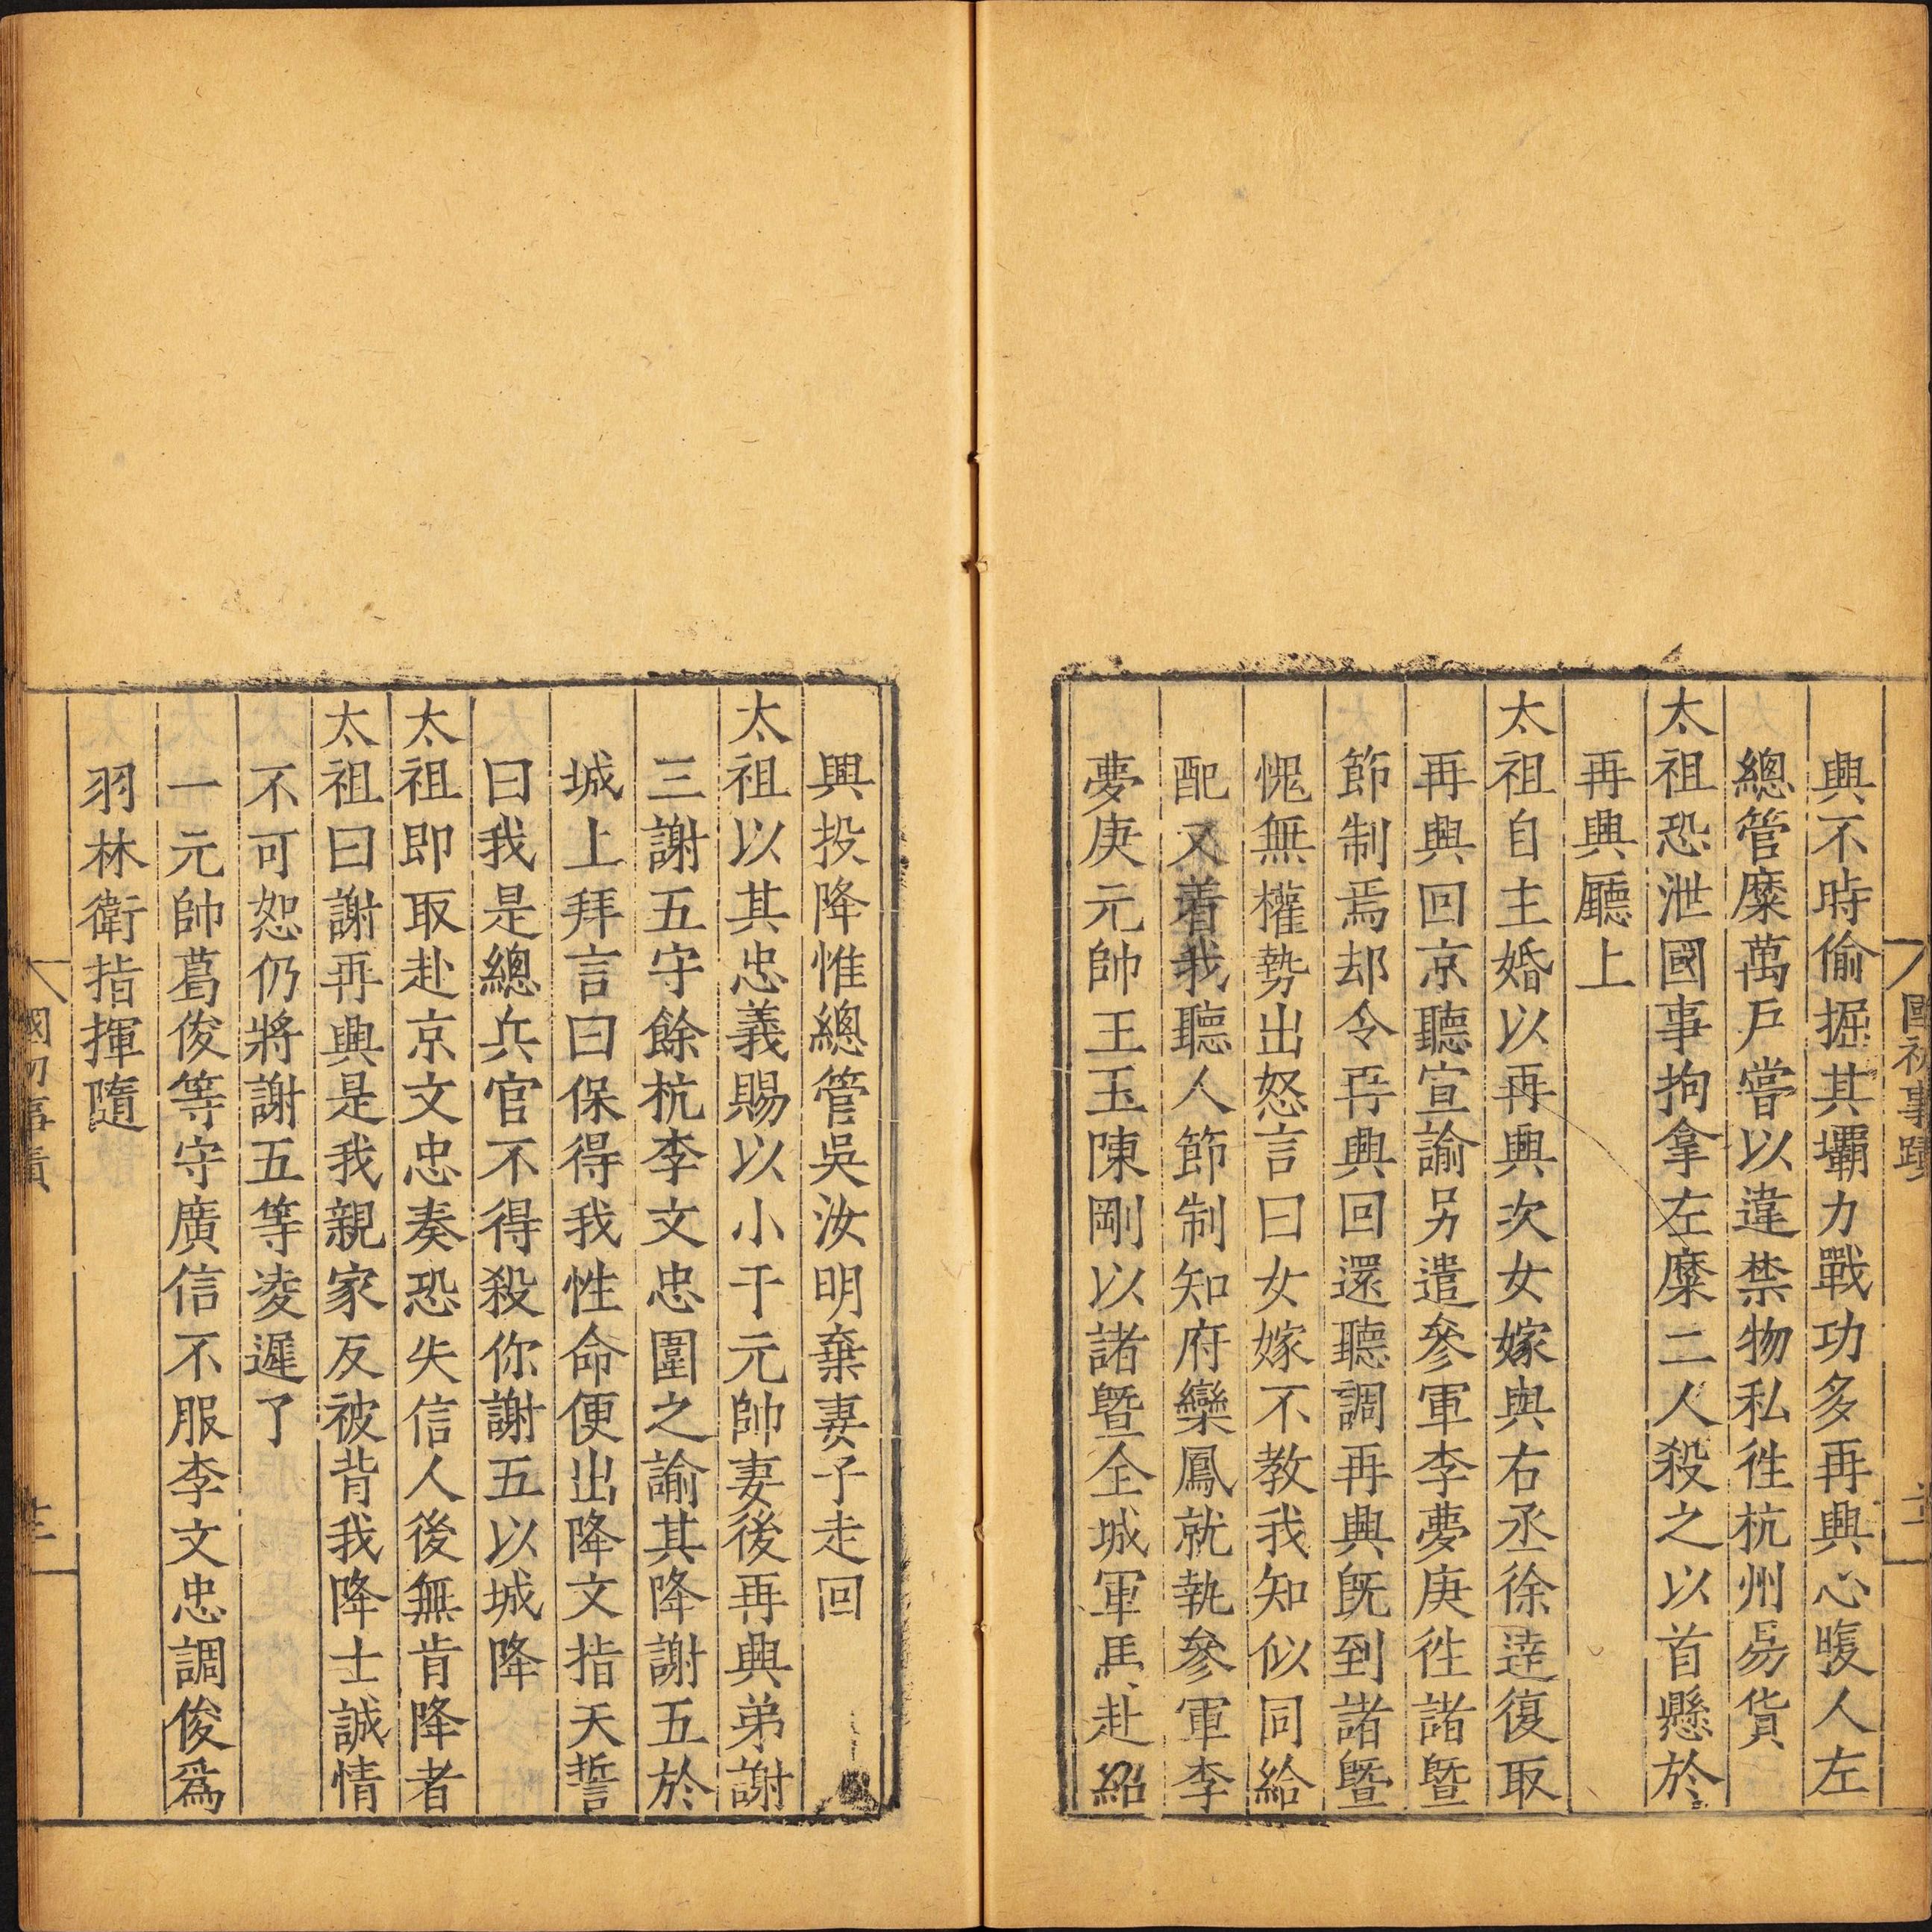 國初事蹟
興不時偷掘其壩力戰功多再興心腹人左
總管糜萬戶嘗以違禁物私徃杭州易貨
太祖恐泄國事拘拿左糜二人殺之以首懸於
再興廳上
太祖自主婚以再興次女嫁與右丞徐逹復取
再興回京聽宣諭另遣參軍李夢庚徃諸暨
節制焉却令再興回還聽調再興既到諸暨
愧無權勢出怒言曰女嫁不教我知似同給
配又着我聽人節制知府欒鳳就執參軍李
夢庚元帥王玉陳剛以諸暨全城軍馬赴紹
興投降惟總管吳汝明棄妻子走回
太祖以其忠義賜以小于元帥妻後再興弟謝
三謝五守餘杭李文忠圍之諭其降謝五於
城上拜言曰保得我性命便出降文指天誓
曰我是總兵官不得殺你謝五以城降
太祖即取赴京文忠奏恐失信人後無肯降者
太祖曰謝再興是我親家反被背我降士誠情
不可恕仍將謝五等凌遲了
一元帥葛俊等守廣信不服李文忠調俊為
羽林衛指揮隨
國初事蹟